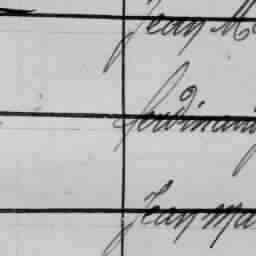 Jean M
Ferdinand
Jean Ma